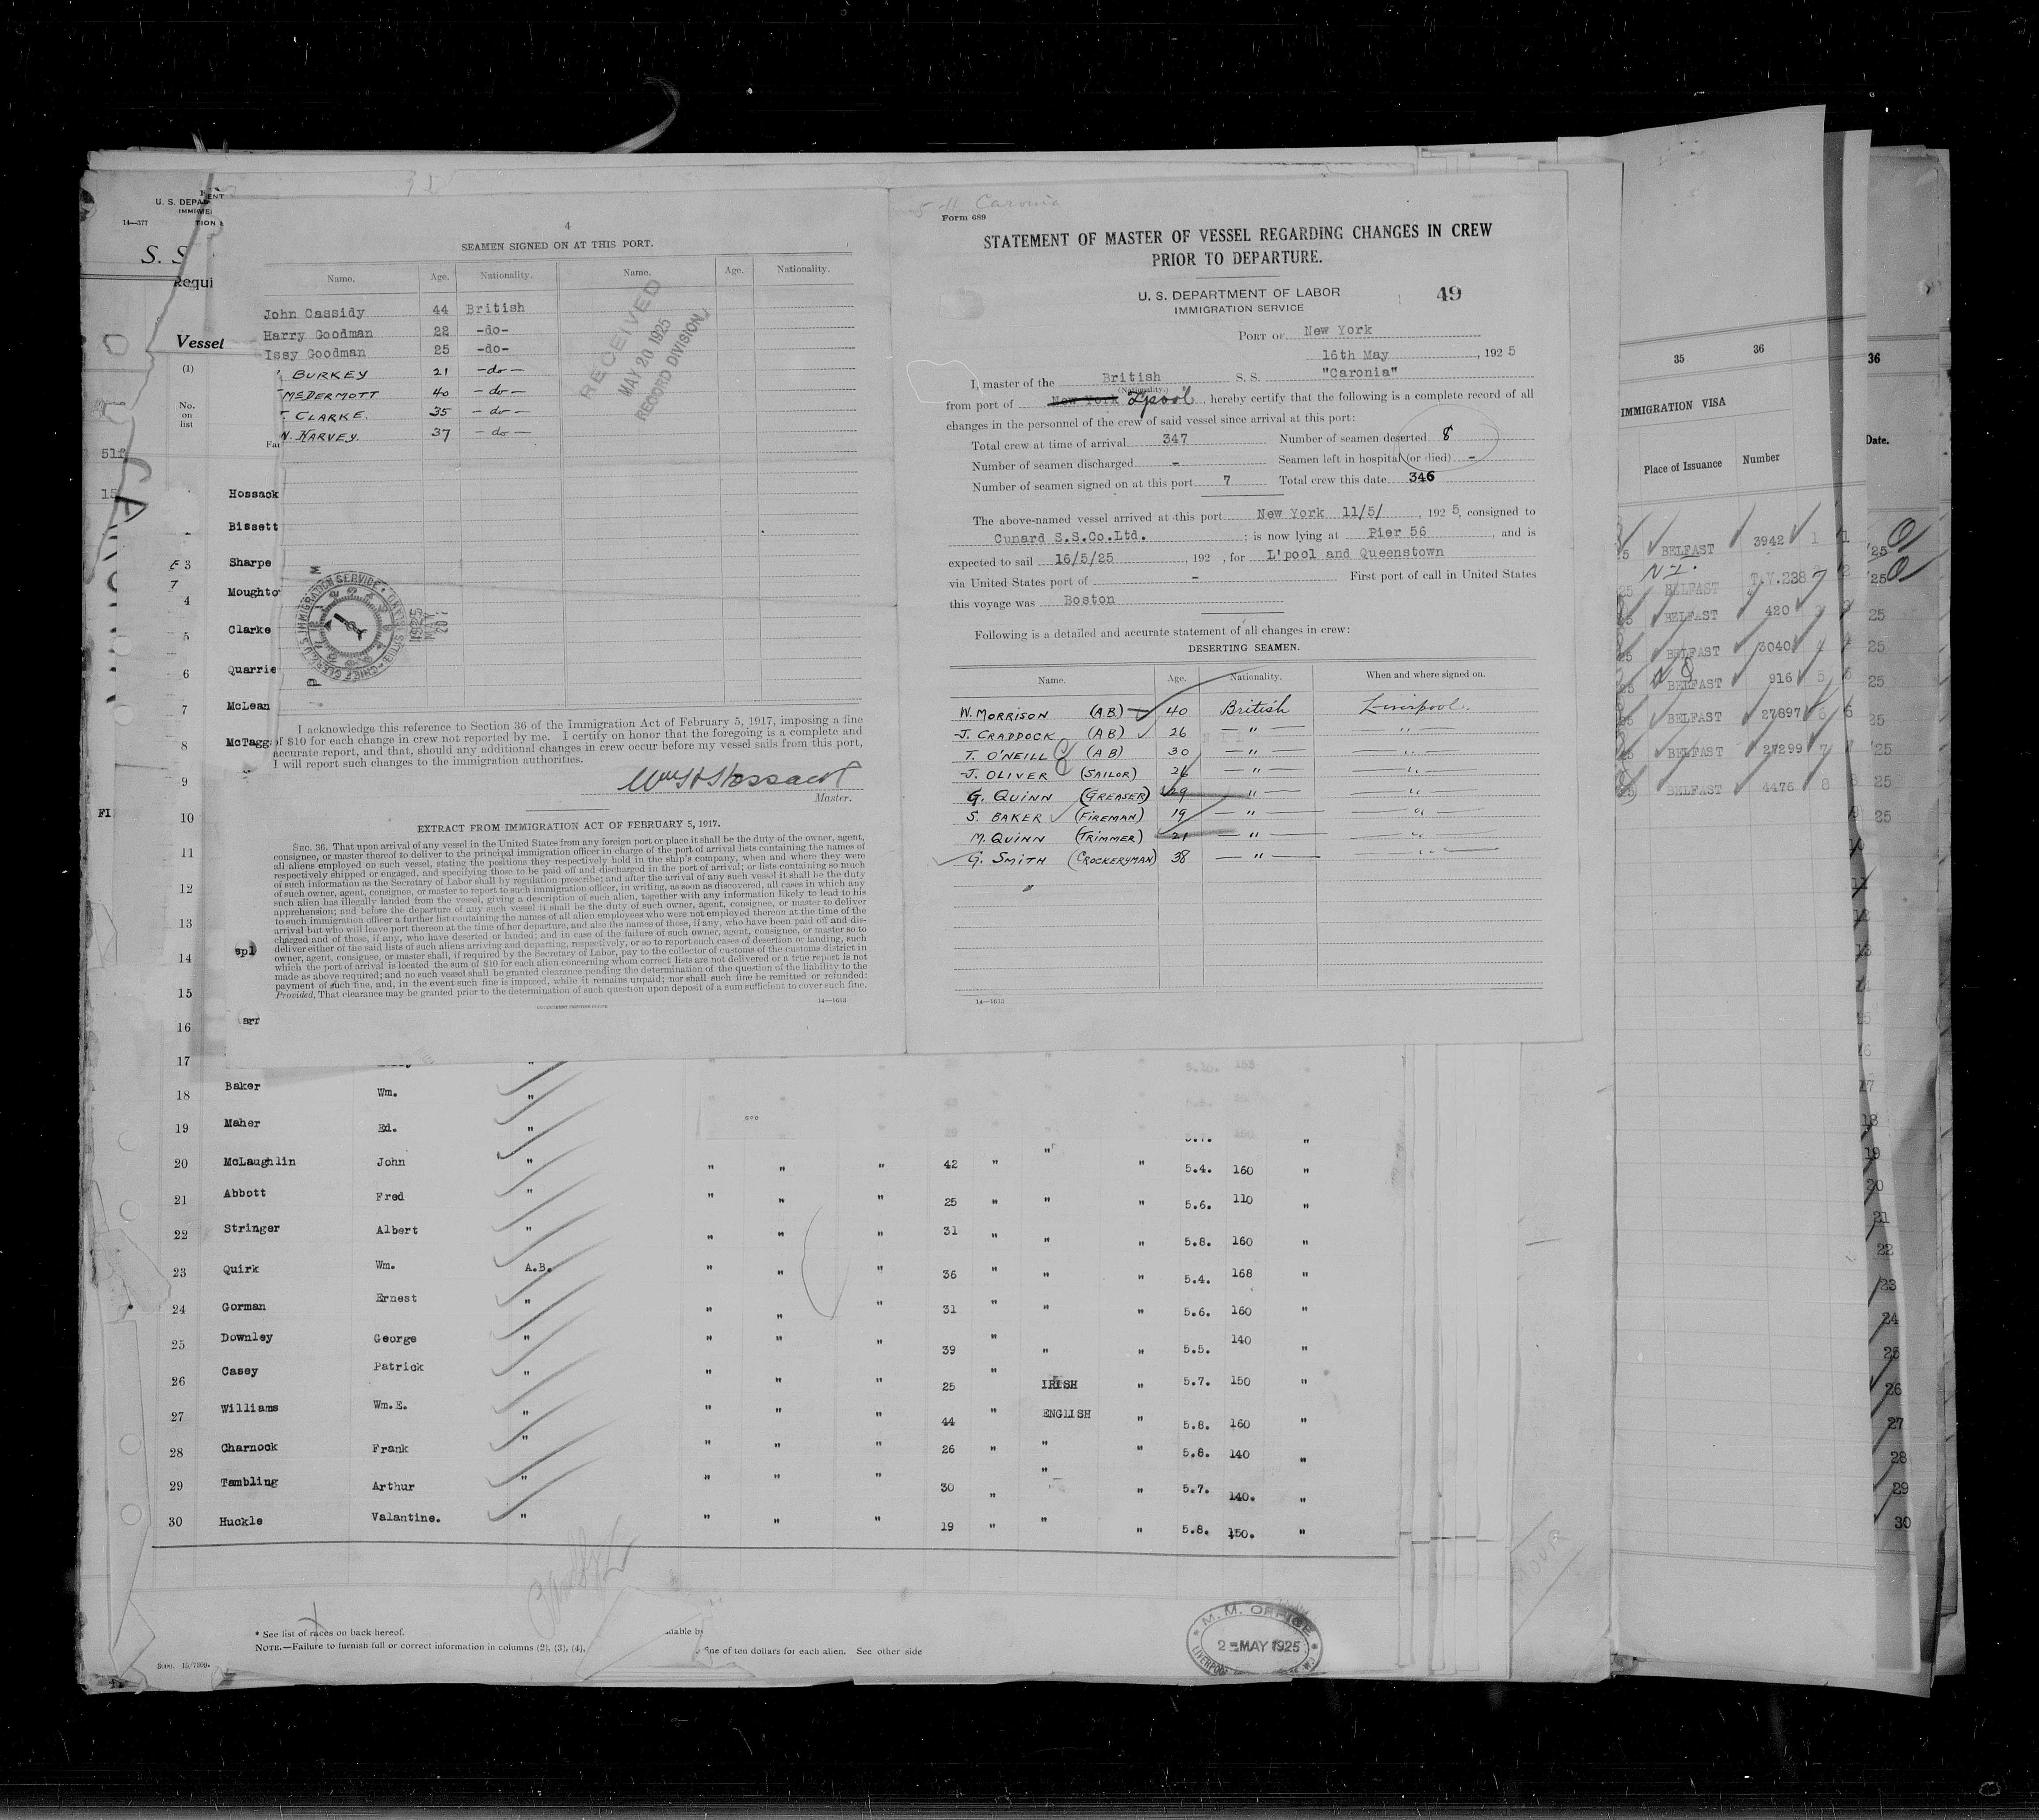 4
SEAMEN SIGNED ON AT THIS PORT.
Name. Age. Nationality. Name. Age. Nationality.
John Cassidy 44 British
Harry Goodman 22 -do-
Issy Goodman 25 -do-
BURKEY 21 -do-
McDERMOTT 40 -do-
T. CLARKE. 35 -do-
N. HARVEY. 37 -do-
RECEIVED
MAY 20 1925
RECORD DIVISION
I acknowledge this reference to Section 36 of the Immigration Act of February 5, 1917, imposing a fine
of $10 for each change in crew not reported by me. I certify on honor that the foregoing is a complete and
accurate report, and that, should any additional changes in crew occur before my vessel sails from this port,
I will report such changes to the immigration authorities.
Wm H Hossack
Master.
EXTRACT FROM IMMIGRATION ACT OF FEBRUARY 5, 1917.
SEC. 36. That upon arrival of any vessel in the United States from any foreign port or place it shall be the duty of the owner, agent,
consignee, or master thereof to deliver to the principal immigration officer in charge of the port of arrival lists containing the names of
all aliens employed on such vessel, stating the positions they respectively hold in the ship's company, when and where they were
respectively shipped or engaged, and specifying those to be paid off and discharged in the port of arrival; or lists containing so much
of such information as the Secretary of Labor shall by regulation prescribe; and after the arrival of any such vessel it shall be the duty
of such owner, agent, consignee, or master to report to such immigration officer, in writing, as soon as discovered, all cases in which any
such alien has illegally landed from the vessel, giving a description of such alien, together with any information likely to lead to his
apprehension; and before the departure of any such vessel it shall be the duty of such owner, agent, consignee, or master to deliver
to such immigration officer a further list containing the names of all alien employees who were not employed thereon at the time of the
arrival but who will leave port thereon at the time of her departure, and also the names of those, if any, who have been paid off and dis-
charged and of those, if any, who have deserted or landed; and in case of the failure of such owner, agent, consignee, or master so to
deliver either of the said lists of such aliens arriving and departing, respectively, or so to report such cases of desertion or landing, such
owner, agent, consignee, or master shall, if required by the Secretary of Labor, pay to the collector of customs of the customs district in
which the port of arrival is located the sum of $10 for each alien concerning whom correct lists are not delivered or a true report is not
made as above required; and no such vessel shall be granted clearance pending the determination of the question of the liability to the
payment of such fine, and, in the event such fine is imposed, while it remains unpaid; nor shall such fine be remitted or refunded:
Provided, That clearance may be granted prior to the determination of such question upon deposit of a sum sufficient to cover such fine.
GOVERNMENT PRINTING OFFICE
14—1613
Caronia
Form 689
STATEMENT OF MASTER OF VESSEL REGARDING CHANGES IN CREW
PRIOR TO DEPARTURE.
U. S. DEPARTMENT OF LABOR
IMMIGRATION SERVICE
49
PORT OF New York
16th May, 1925
I, master of the British S. S. "Caronia"
(Nationality.)
from port of New York L'pool, hereby certify that the following is a complete record of all
changes in the personnel of the crew of said vessel since arrival at this port:
Total crew at time of arrival 347 Number of seamen deserted 8
Number of seamen discharged - Seamen left in hospital (or died) -
Number of seamen signed on at this port 7 Total crew this date 346
The above-named vessel arrived at this port New York 11/5/, 1925, consigned to
Cunard S.S.Co.Ltd. ; is now lying at Pier 56, and is
expected to sail 16/5/25, 192 , for L'pool and Queenstown
via United States port of - First port of call in United States
this voyage was Boston
Following is a detailed and accurate statement of all changes in crew:
DESERTING SEAMEN.
Name. Age. Nationality. When and where signed on.
W. MORRISON (AB) 40 British Liverpool.
J. CRADDOCK (AB) 26 — " — — " —
T. O'NEILL (AB) 30 — " — — " —
J. OLIVER (SAILOR) 26 — " — — " —
G. QUINN (GREASER) 29 — " — — " —
S. BAKER (FIREMAN) 19 — " — — " —
M. QUINN (TRIMMER) 21 — " — — " —
G. SMITH (CROCKERYMAN) 38 — " — — " —
14—1613
U. S. DEPA
14—377
S. S
Requi
Vessel
(1)
No.
on
list
Hossack
Bissett
3 Sharpe
4 Moughto
5 Clarke
6 Quarrie
7 McLean
8 McTagg
9
10
11
12
13
14
15
16
17
18 Baker Wm. "
19 Maher Ed. "
20 McLaughlin John " " " " 42 " " " 5.4. 160 "
21 Abbott Fred " " " " 25 " " " 5.6. 110 "
22 Stringer Albert " " " " 31 " " " 5.8. 160 "
23 Quirk Wm. A.B. " " " 36 " " " 5.4. 168 "
24 Gorman Ernest " " " " 31 " " " 5.6. 160 "
25 Downley George " " " " 39 " " " 5.5. 140 "
26 Casey Patrick " " " " 25 " IRISH " 5.7. 150 "
27 Williams Wm.E. " " " " 44 " ENGLISH " 5.8. 160 "
28 Charnock Frank " " " " 26 " " " 5.8. 140 "
29 Tambling Arthur " " " " 30 " " " 5.7. 140. "
30 Huckle Valantine. " " " " 19 " " " 5.8. 150. "
* See list of races on back hereof.
NOTE.—Failure to furnish full or correct information in columns (2), (3), (4),
fine of ten dollars for each alien. See other side
M. M. OFFICE
2 MAY 1925
LIVERPOOL
35 36
IMMIGRATION VISA
Place of Issuance Number
BELFAST 3942 1
N I.
BELFAST T.V.238 2
BELFAST 420 3
BELFAST 3040 4
BELFAST 916 5
BELFAST 27897 6
BELFAST 27299 7
BELFAST 4476 8
36
Date.
18
19
20
21
22
23
24
25
26
27
28
29
30